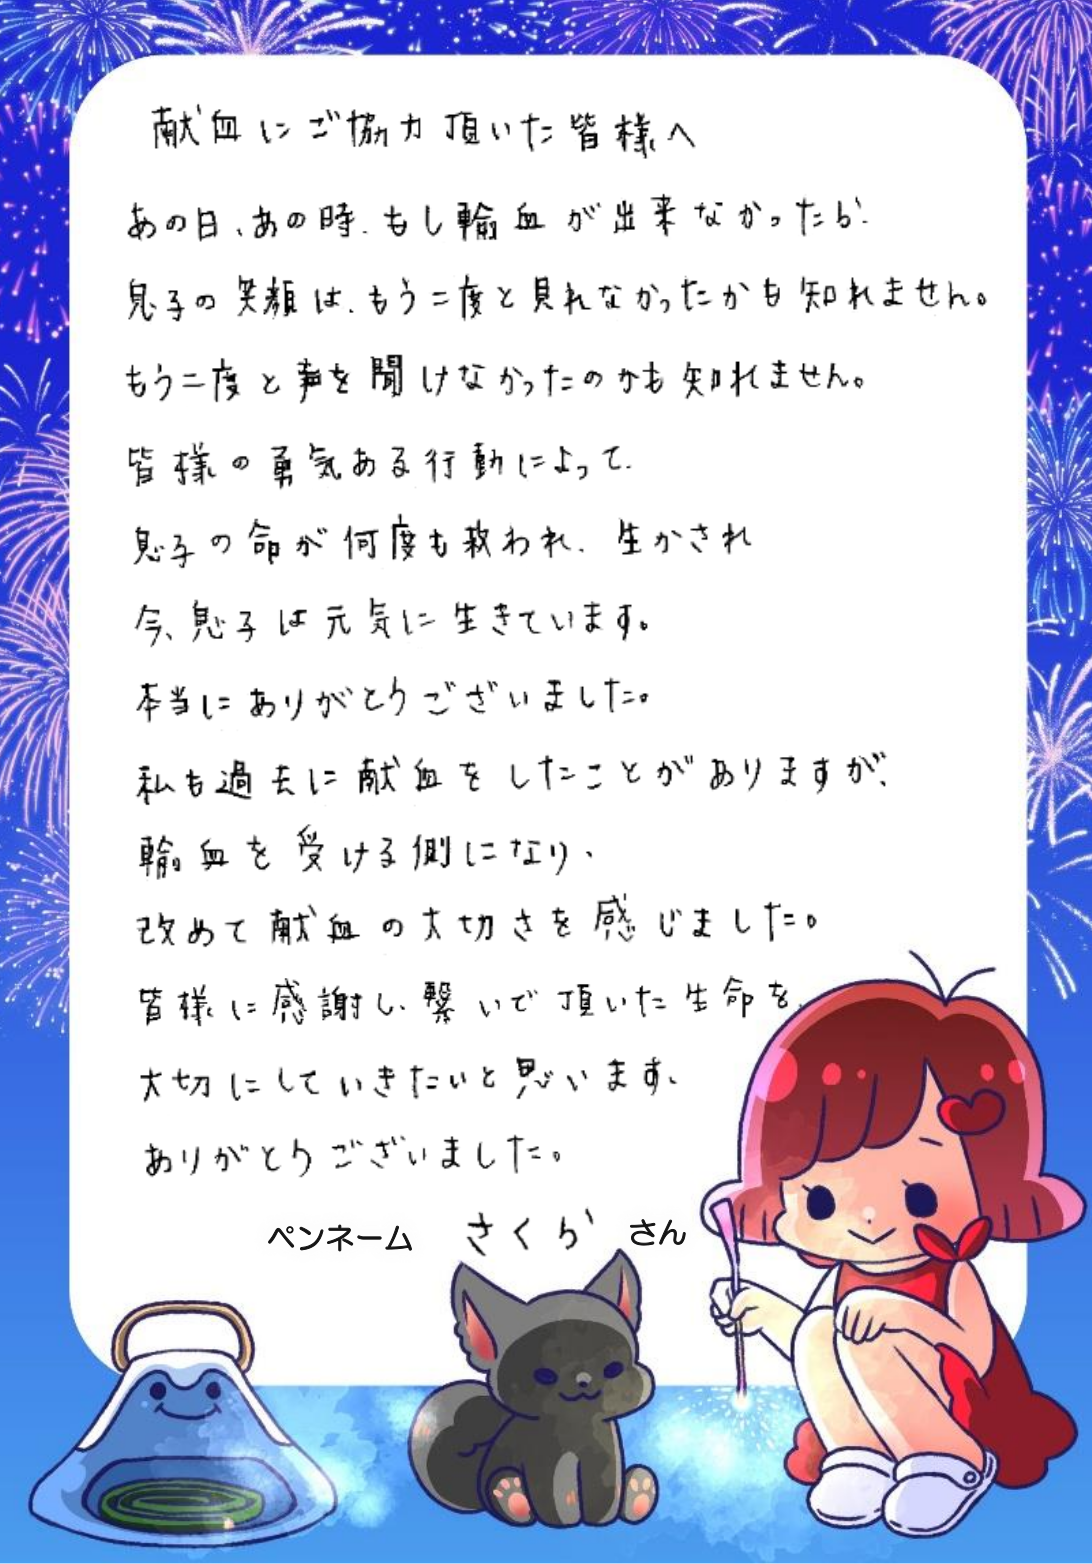 献血にご協力頂いた皆様へ
あの日、あの時、もし輸血が出来なかったら、
息子の笑顔は、もう二度と見れなかったかも知れません。
もう二度と声を聞けなかったのかも知れません。
皆様の勇気ある行動によって、
息子の命が何度も救われ、生かされ
今、息子は元気に生きています。
本当にありがとうございました。
私も過去に献血をしたことがありますが、
輸血を受ける側になり、
改めて献血の大切さを感じました。
皆様に感謝し、繋いで頂いた生命を、
大切にしていきたいと思います。
ありがとうございました。
ペンネーム さくら さん